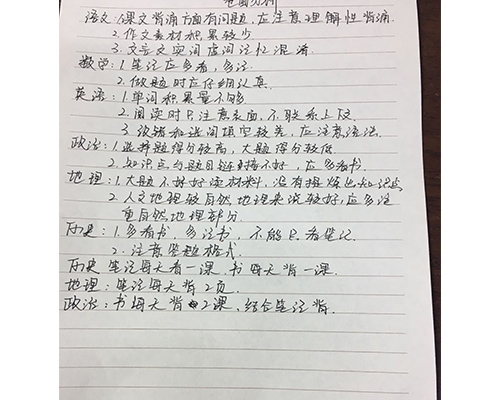 卷面分析
语文:1.课文背诵方面有问题,应注意理解性背诵.
2.作文素材积累较少
3.文言文实词虚词记忆混淆
数学:1.笔记应多看,多记
2.做题时应仔细认真
英语:1.单词积累量不够
2.阅读时只注意表面,不联系上下文
3.改错和选词填空较差,应注意语法
政治:1.选择题得分较高,大题得分较低
2.知识点与题目链接不好,应多看书.
地理:1.大题不好好读材料,没有提炼出知识点
2.人文地理较自然地理来说较好,应多注
重自然地理部分.
历史:1.多看书,多注书,不能只看笔记.
2.注意答题格式.
历史 笔记每天看一课.书每天背一课.
地理:笔记每天背2页.
政治:书每天背2课,结合笔记背.